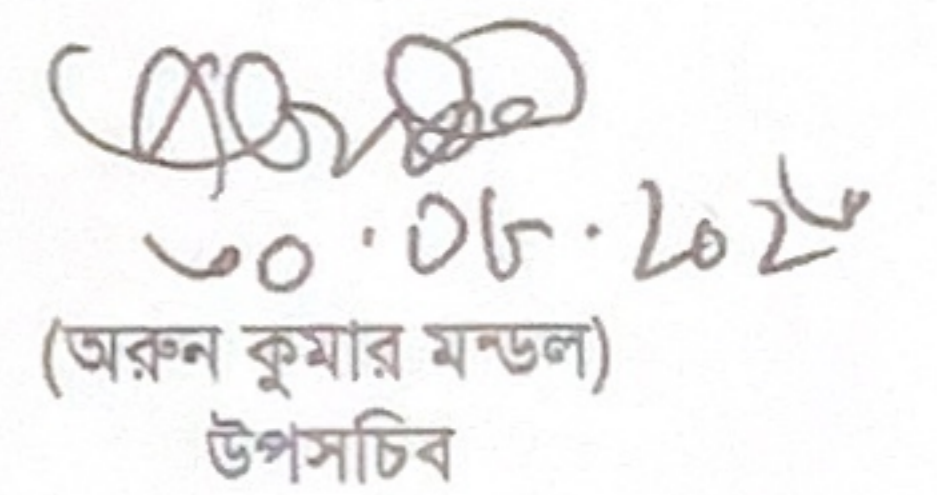 ৩০.০৮.২০২৩
(অরুন কুমার মন্ডল)
উপসচিব